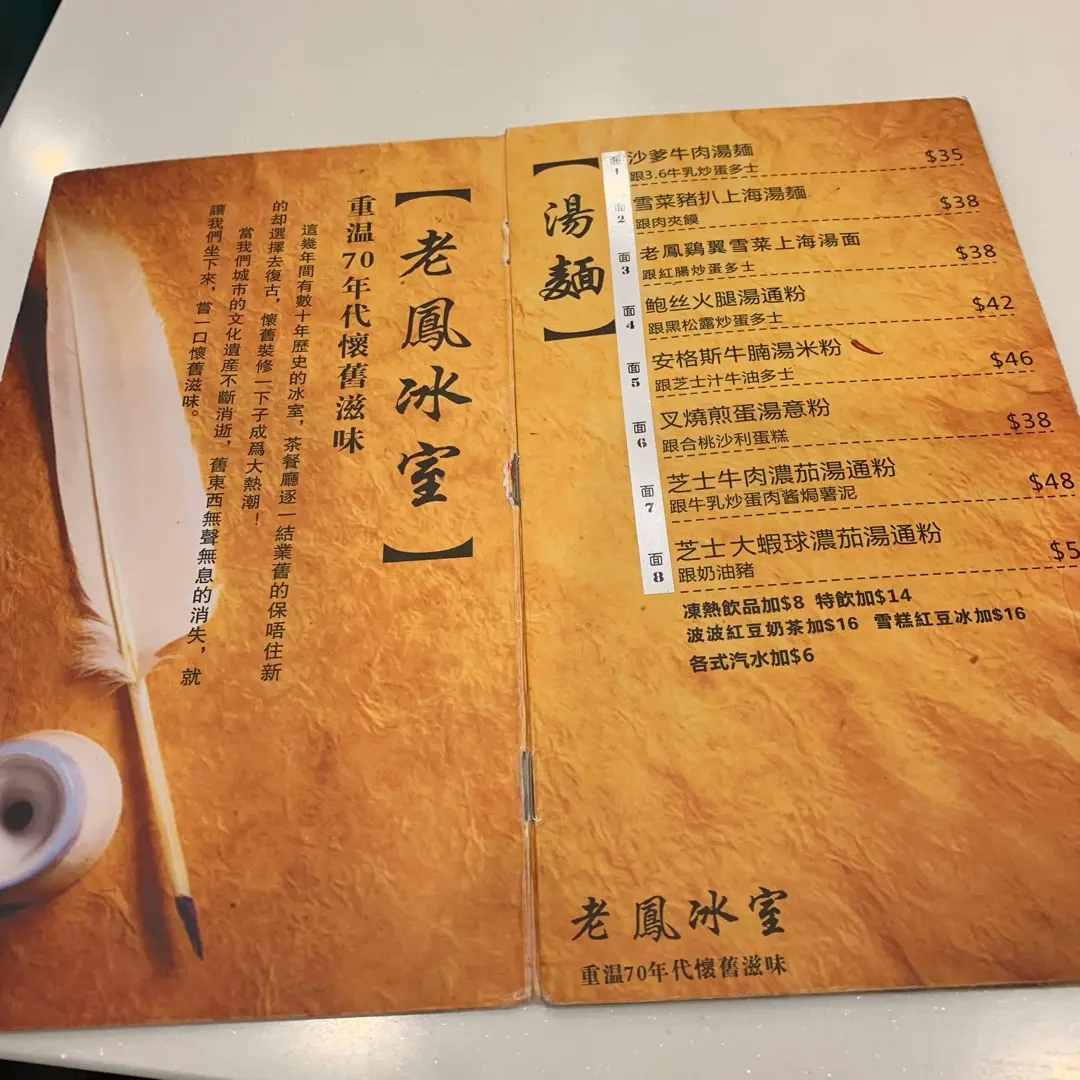 【老鳳冰室】
重温70年代懷舊滋味
這幾年間有數十年歷史的冰室，茶餐廳逐一結業舊的保唔住新
的却選擇去復古，懷舊裝修一下子成爲大熱潮！
當我們城市的文化遺産不斷消逝，舊東西無聲無息的消失，就
讓我們坐下來，嘗一口懷舊滋味。
【湯麵】
面1 沙爹牛肉湯麵 $35
跟3.6牛乳炒蛋多士
面2 雪菜豬扒上海湯麵 $38
跟肉夾饃
面3 老鳳鷄翼雪菜上海湯面 $38
跟紅腸炒蛋多士
面4 鲍丝火腿湯通粉 $42
跟黑松露炒蛋多士
面5 安格斯牛腩湯米粉 $46
跟芝士汁牛油多士
面6 叉燒煎蛋湯意粉 $38
跟合桃沙利蛋糕
面7 芝士牛肉濃茄湯通粉 $48
跟牛乳炒蛋肉酱焗薯泥
面8 芝士大蝦球濃茄湯通粉
跟奶油豬
凍熱飲品加$8 特飲加$14
波波紅豆奶茶加$16 雪糕紅豆冰加$16
各式汽水加$6
老鳳冰室
重温70年代懷舊滋味